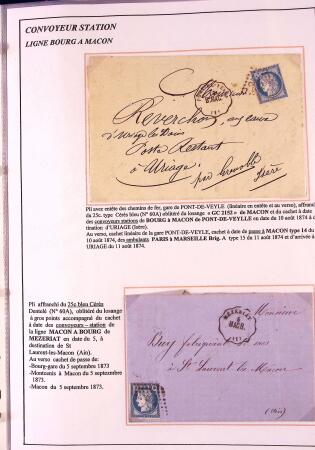 CONVOYEUR STATION
LIGNE BOURG A MACON
Reverchon, aux eaux
d'Uriage les Bains
Poste Restant
à Uriage
par Grenoble
Isère
Pli avec entête des chemins de fer, gare de PONT-DE-VEYLE (linéaire en entête et au verso), affranchi
du 25c. type Cérès bleu (N° 60A) oblitéré du losange « GC 2152 » de MACON et du cachet à date
des convoyeurs stations de BOURG à MACON de PONT-DE-VEYLE en date du 10 août 1874 à
destination d'URIAGE (Isère).
Au verso, cachet linéaire de la gare PONT-DE-VEYLE, cachet à date de passe à MACON type 14 du
10 août 1874, des ambulants PARIS à MARSEILLE Brig. A type 15 du 11 août 1874 et d'arrivée à
URIAGE du 11 août 1874.
Pli affranchi du 25c bleu Cérès
Dentelé (N° 60A), oblitéré du losange
à gros points accompagné du cachet
à date des convoyeurs – station de
la ligne MACON A BOURG de
MEZERIAT en date du 5, à
destination de St
Laurent-les Macon (Ain).
Au verso cachet de passe de:
-Bourg-gare du 5 septembre 1873
-Montcenis à Macon du 5 septembre
1873.
-Macon du 5 septembre 1873.
MEZERIAT
Monsieur
Buey fabriquant de
à St Laurent les Macon
(Ain)